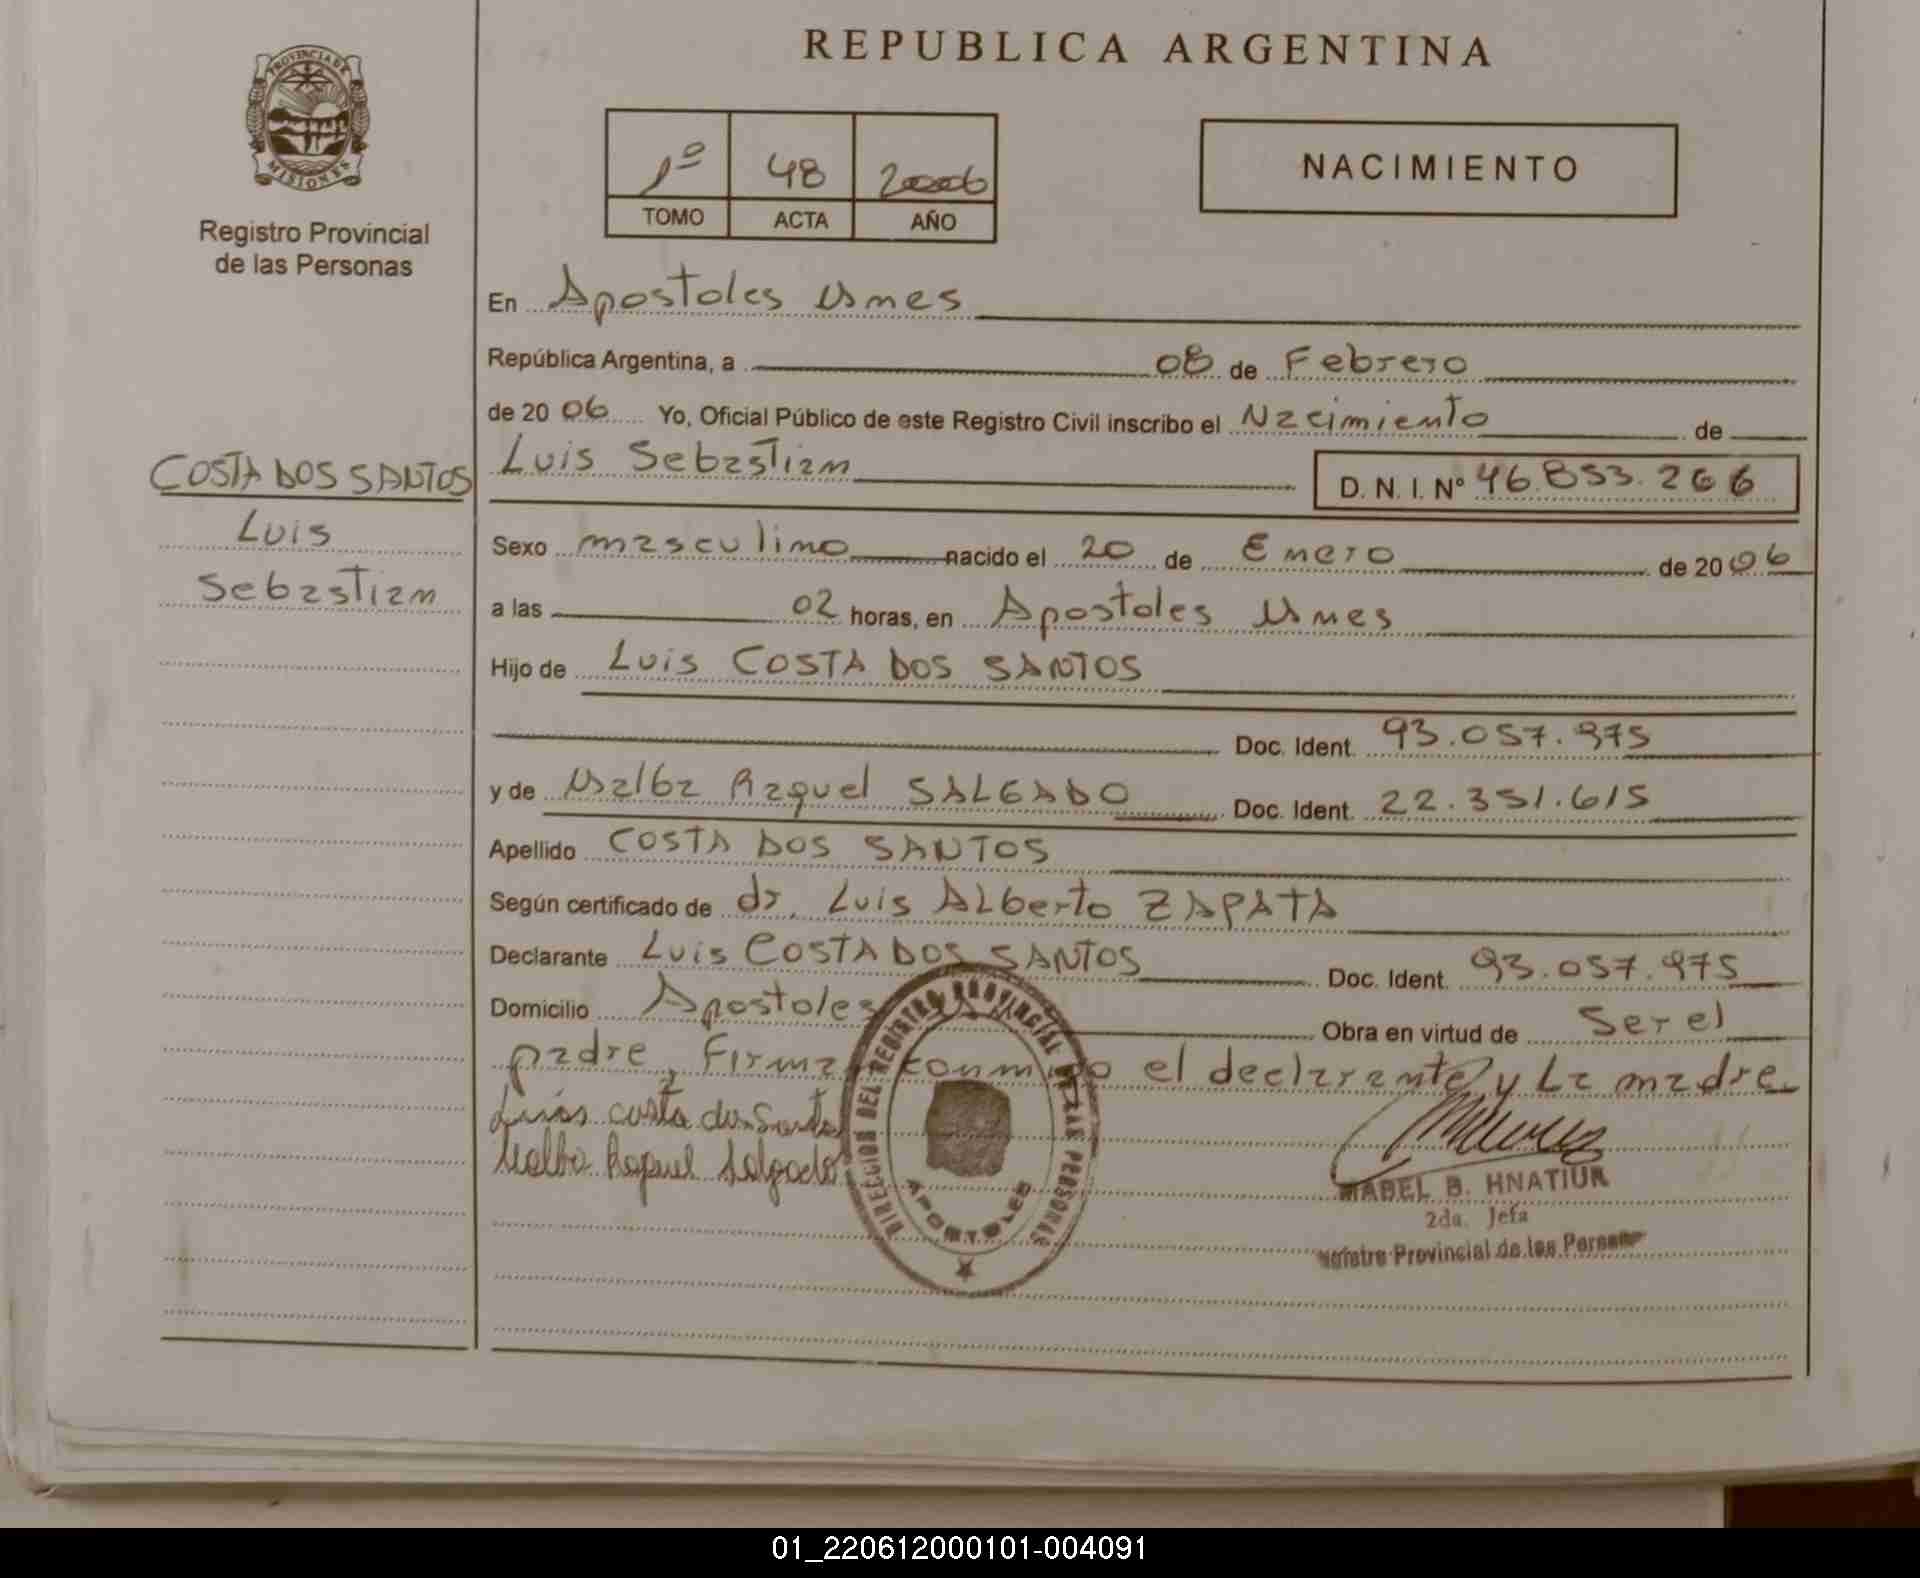 REPUBLICA ARGENTINA
PROVINCIA DE
MISIONES
Registro Provincial
de las Personas
1º 48 2006
TOMO ACTA AÑO
NACIMIENTO
En Apostoles Mnes
República Argentina, a 08 de Febrero
de 20 06 Yo, Oficial Público de este Registro Civil inscribo el Nacimiento de
COSTA DOS SANTOS
Luis
Sebastian
Luis Sebastian
D. N. I. Nº 46.853.266
Sexo masculino nacido el 20 de Enero de 20 06
a las 02 horas, en Apostoles Mnes
Hijo de Luis COSTA DOS SANTOS
Doc. Ident. 93.057.975
y de Malba Raquel SALGADO Doc. Ident. 22.351.615
Apellido COSTA DOS SANTOS
Según certificado de dr. Luis ALberto ZAPATA
Declarante Luis COSTA DOS SANTOS Doc. Ident. 93.057.975
Domicilio Apostoles Obra en virtud de Ser el
padre, Firma conmigo el declarante y La madre
Luis costa dos Santos
Malba Raquel Salgado
DIRECCION DEL REGISTRO PROVINCIAL DE LAS PERSONAS
APOSTOLES
MABEL B. HNATIUK
2da. Jefa
Registro Provincial de las Personas
01_220612000101-004091